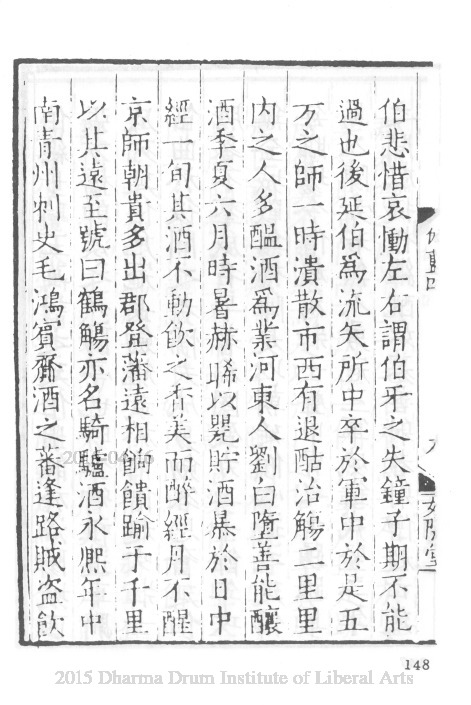 伯悲惜哀慟左右謂伯牙之失鐘子期不能
過也後延伯爲流矢所中卒於軍中於是五
万之師一時潰散市西有退酤治觴二里里
内之人多醖酒爲業河東人劉白墮善能釀
酒季夏六月時暑赫晞以甖貯酒暴於日中
經一旬其酒不動飲之香美而醉經月不醒
京師朝貴多出郡登藩遠相餉饋踰于千里
以其遠至號曰鶴觴亦名騎驢酒永熈年中
南青州刺史毛鴻賓齎酒之蕃逢路賊盗飲
148
2015 Dharma Drum Institute of Liberal Arts